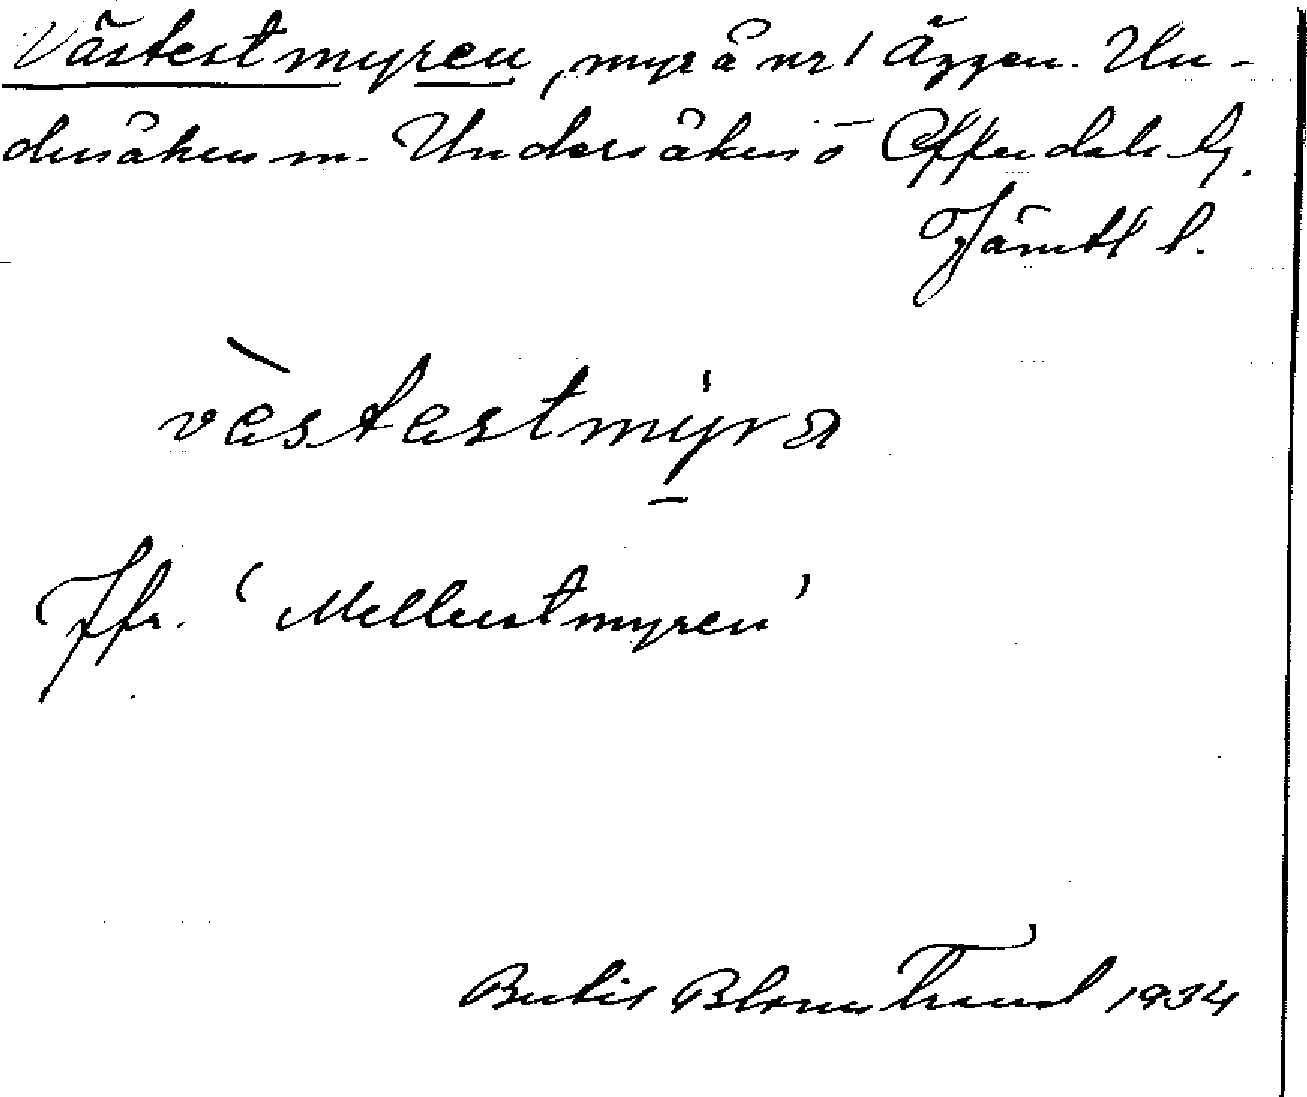 Västestmyren, myr å nr 1 Äggen. Un-
dersåkers sn. Undersåkers o Offerdals tg.
Jämtl l.
vèstestmyrα
Jfr. 'Mellerstmyren'
Bertil Blomstrand 1934